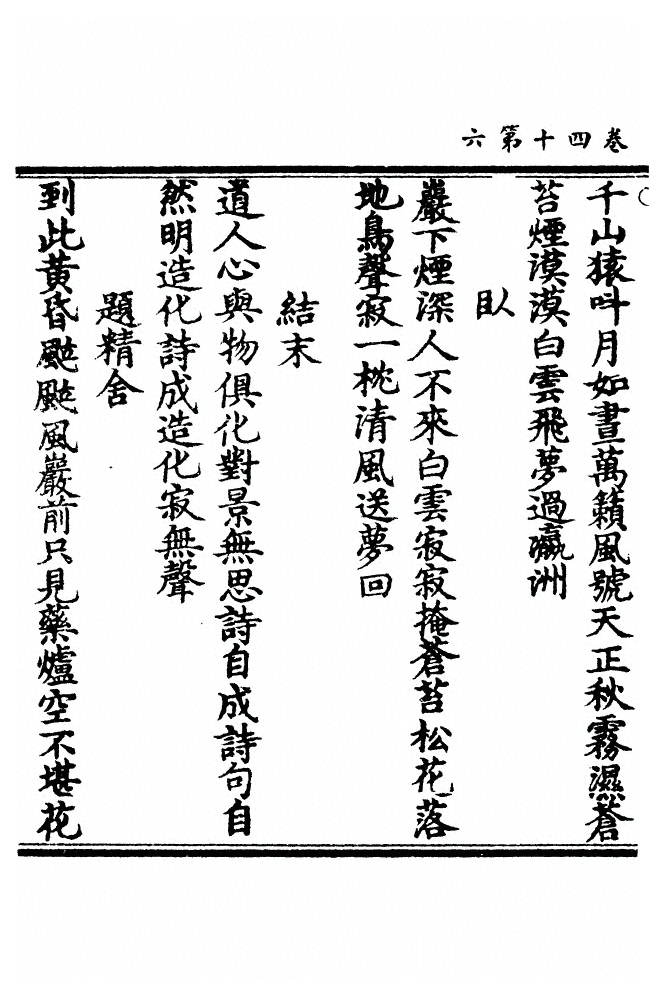 卷四十第六
千山猿呌月如晝萬籟風號天正秋霧濕蒼
苔煙漠漠白雲飛夢過瀛洲
臥
巖下煙深人不來白雲寂寂掩蒼苔松花落
地鳥聲寂一枕清風送夢回
結末
道人心與物俱化對景無思詩自成詩句自
然明造化詩成造化寂無聲
題精舍
到此黃昏颭颭風巖前只見藥爐空不堪花